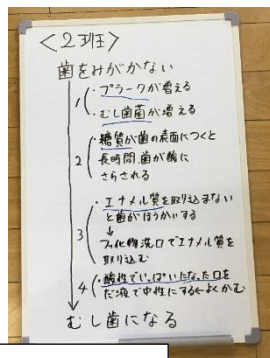 <2班>
歯をみがかない
1 ・プラークが増える
・むし歯菌が増える
2 ・糖質が歯の表面につくと
長時間歯が酸に
さらされる
3 ・エナメル質を取り込まない
と歯がほうかいする
↓
フッ化物洗口でエナメル質を
取り込む
4 ・酸性でいっぱいになった口を
だ液で中性にする←よくかむ
むし歯になる